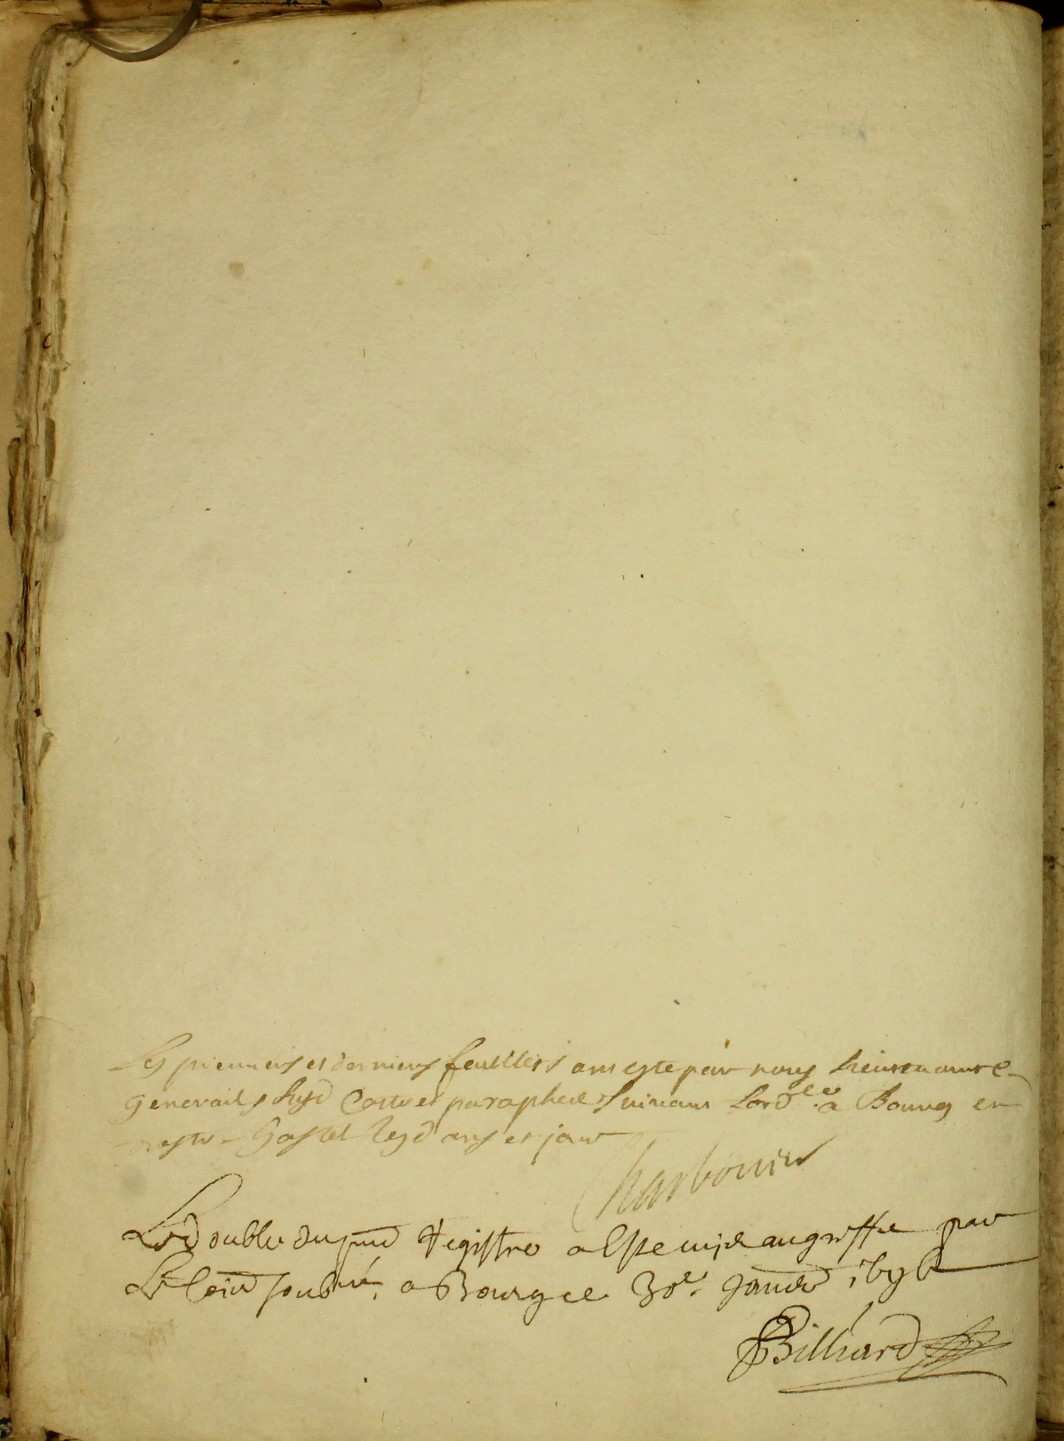 Les premiers et derniers feuillets ont este par nous Lieutenant
general susd Cottes et paraphes suivant Lord.ce a Bourg en
nostre hostel lesd ans et jour
Charbonier
Le double du pnt Registre a este mis au greffe par
Le soubné, a Bourg ce 30e Janvr 1696
Billiard